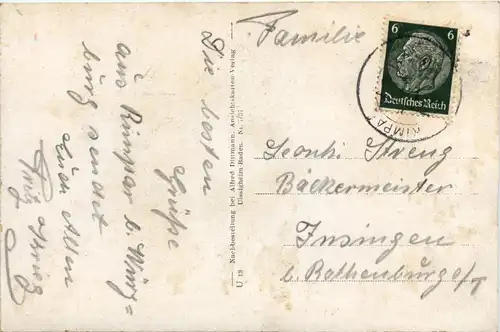 Die besten
Grüße
aus Rimpar b. Würz=
burg sendet
Euch Allen
Fritz Streng
Nachbestellung bei Alfred Dittmann, Ansichtskarten-Verlag
Uissigheim-Baden. Nr.
U 18
Familie
6 6
Deutsches Reich
RIMPA
Leonh. Streng
Bäckermeister
Insingen
b. Rothenburg o/T